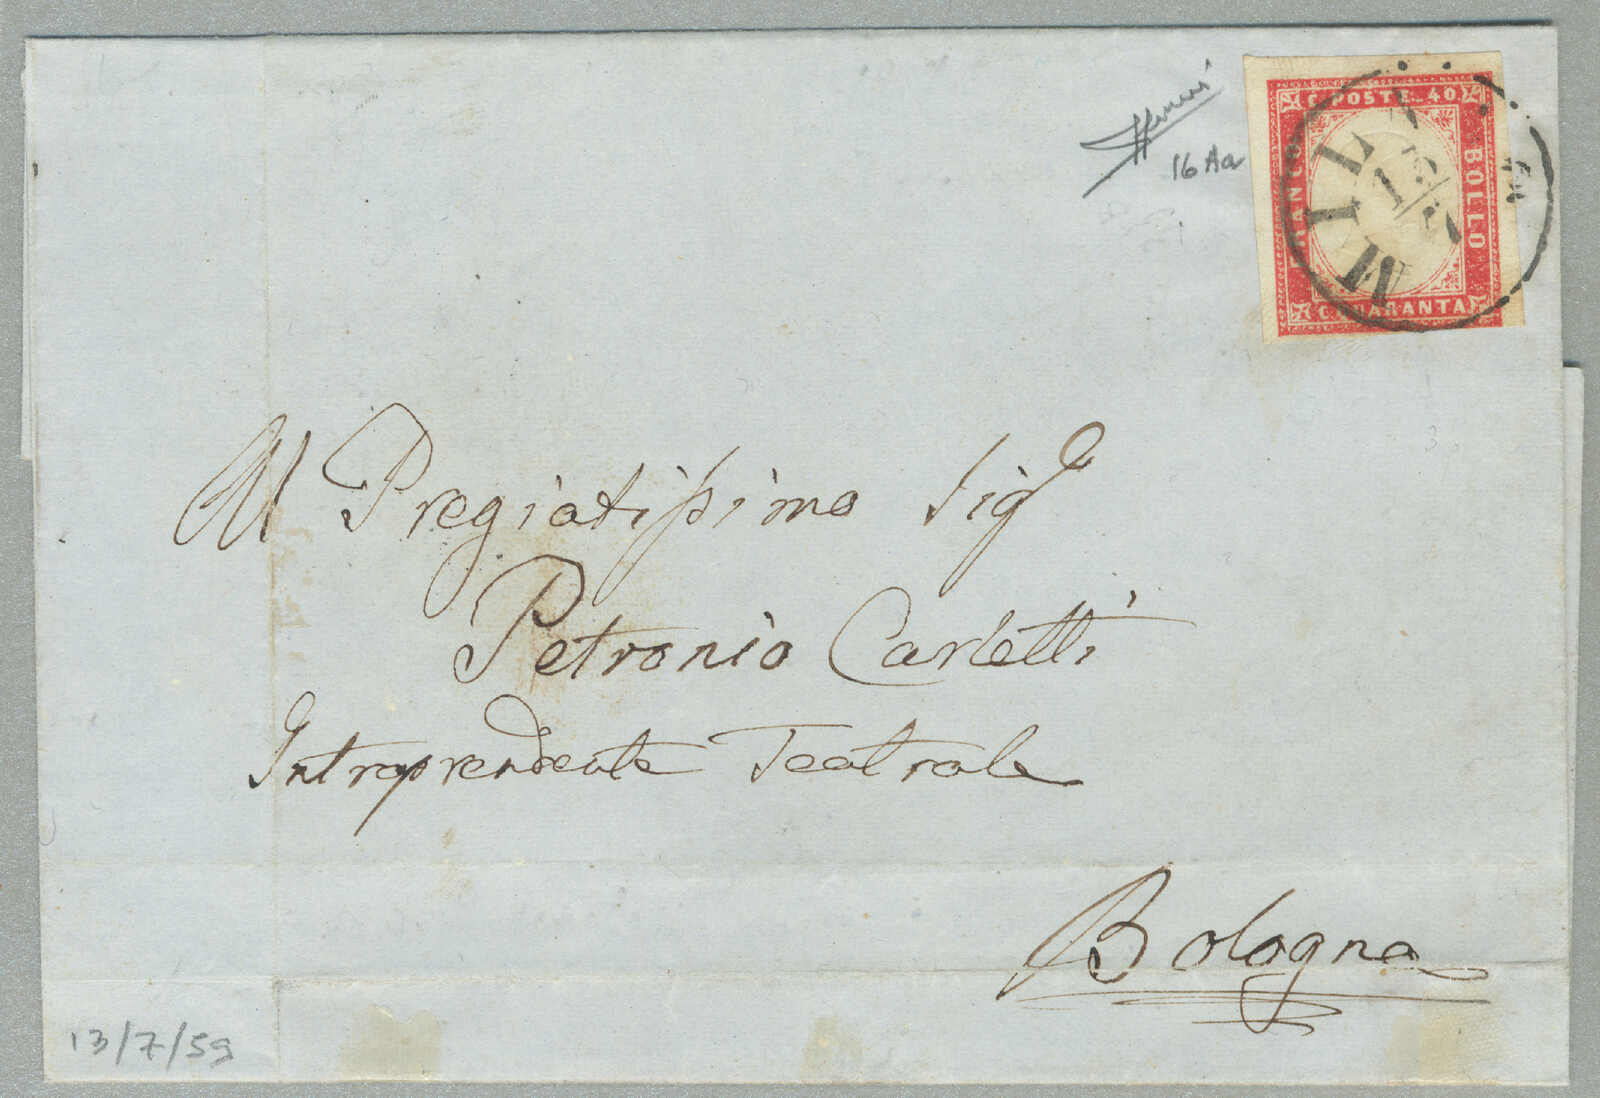 16 Aa
C. POSTE. 40.
FRANCO
BOLLO
QUARANTA
MIL
13/7
Al Pregiatissimo Sigr
Petronio Carletti
Intraprendente Teatrale
Bologna
13/7/59